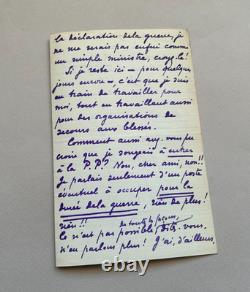 la déclaration de la guerre, je
ne me serais pas enfui comme
un simple ministre, croyez-le!
Si je reste ici — pour quelques
jours encore — c'est que je suis
en train de travailler pour
moi, tout en travaillant aussi
pour des organisations de
secours aux blessés.
Comment aussi avez-vous pu
croire que je songeais à entrer
à la P.P? Non, cher ami, non!!
Je parlais seulement d'un poste
éventuel à occuper pour la
durée de la guerre, rien de plus!
rien!! de toute façon,
Ce n'est pas possible, dites-vous,
n'en parlons plus! J'ai, d'ailleurs,
© 122bis.com